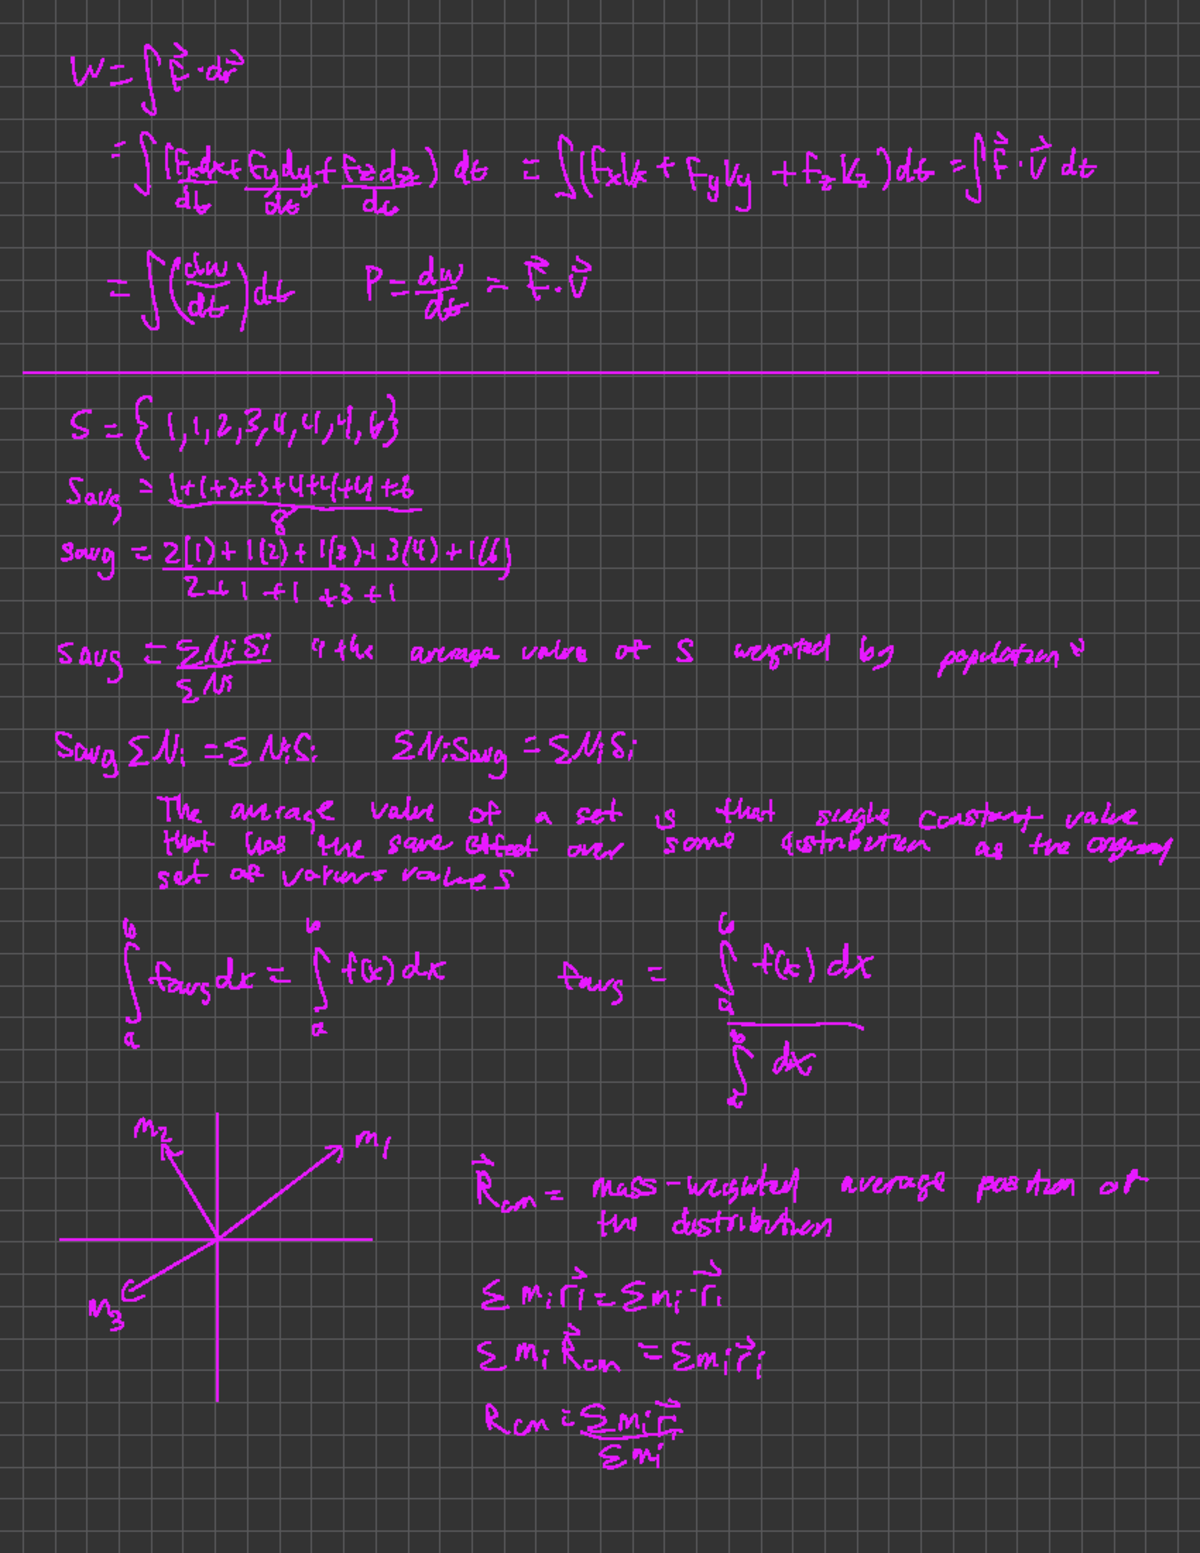 W = ∫ F⃗ · dr⃗
= ∫ (Fx dx/dt + Fy dy/dt + Fz dz/dt) dt = ∫ (Fx Vx + Fy Vy + Fz Vz) dt = ∫ F⃗ · V⃗ dt
= ∫ (dw/dt) dt P = dw/dt = F⃗ · V⃗
S = { 1, 1, 2, 3, 4, 4, 4, 6 }
Savg = (1+1+2+3+4+4+4+6)/8
Savg = (2(1) + 1(2) + 1(3) + 3(4) + 1(6))/(2 + 1 + 1 + 3 + 1)
Savg = ΣNiSi/ΣNi "the average value of S weighted by population"
Savg ΣNi = ΣNiSi ΣNiSavg = ΣNiSi
The average value of a set is that single constant value
that has the same effect over some distribution as the
set of various values
∫ₐᵇ favg dx = ∫ₐᵇ f(x) dx favg = ∫ₐᵇ f(x) dx / ∫ₐᵇ dx
m₂ m₁
R⃗cm = mass-weighted average position of
the distribution
m₃
Σ mi r⃗i = Σmi r⃗i
Σ mi R⃗cm = Σmi r⃗i
Rcm = Σmi r⃗i / Σmi